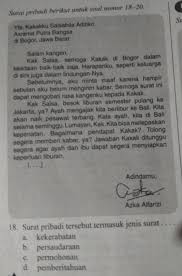 Surat pribadi berikut untuk soal nomor 18-20.
Yts. Kakakku Salsabila Adziko
Asrama Putra Bangsa
di Bogor, Jawa Barat
Salam kangen,
Kak Salsa, semoga Kakak di Bogor dalam
keadaan baik-baik saja. Harapanku, seperti keluarga
di sini juga dalam lindungan-Nya.
Sebelumnya, aku minta maaf karena hampir
sebulan aku belum mengirim kabar, semoga surat ini
dapat mengobati rasa kangenku kepada Kakak.
Kak Salsa, besok liburan semester pulang ke
Jakarta, ya? Ayah mengajak kita berlibur ke Bali. Kita
akan naik pesawat terbang. Kata ayah, kita di Bali
selama seminggu. Lumayan, Kak. Kita bisa melepaskan
kepenatan. Bagaimana pendapat Kakak? Tolong
segera memberi kabar, ya? Jawaban Kakak ditunggu
segera agar ayah dan ibu dapat segera menyiapkan
keperluan liburan.
[. . . .]
Adindamu,
Azka Alfarizi
18. Surat pribadi tersebut termasuk jenis surat . . . .
a. kekerabatan
b. persaudaraan
c. permohonan
d. pemberitahuan